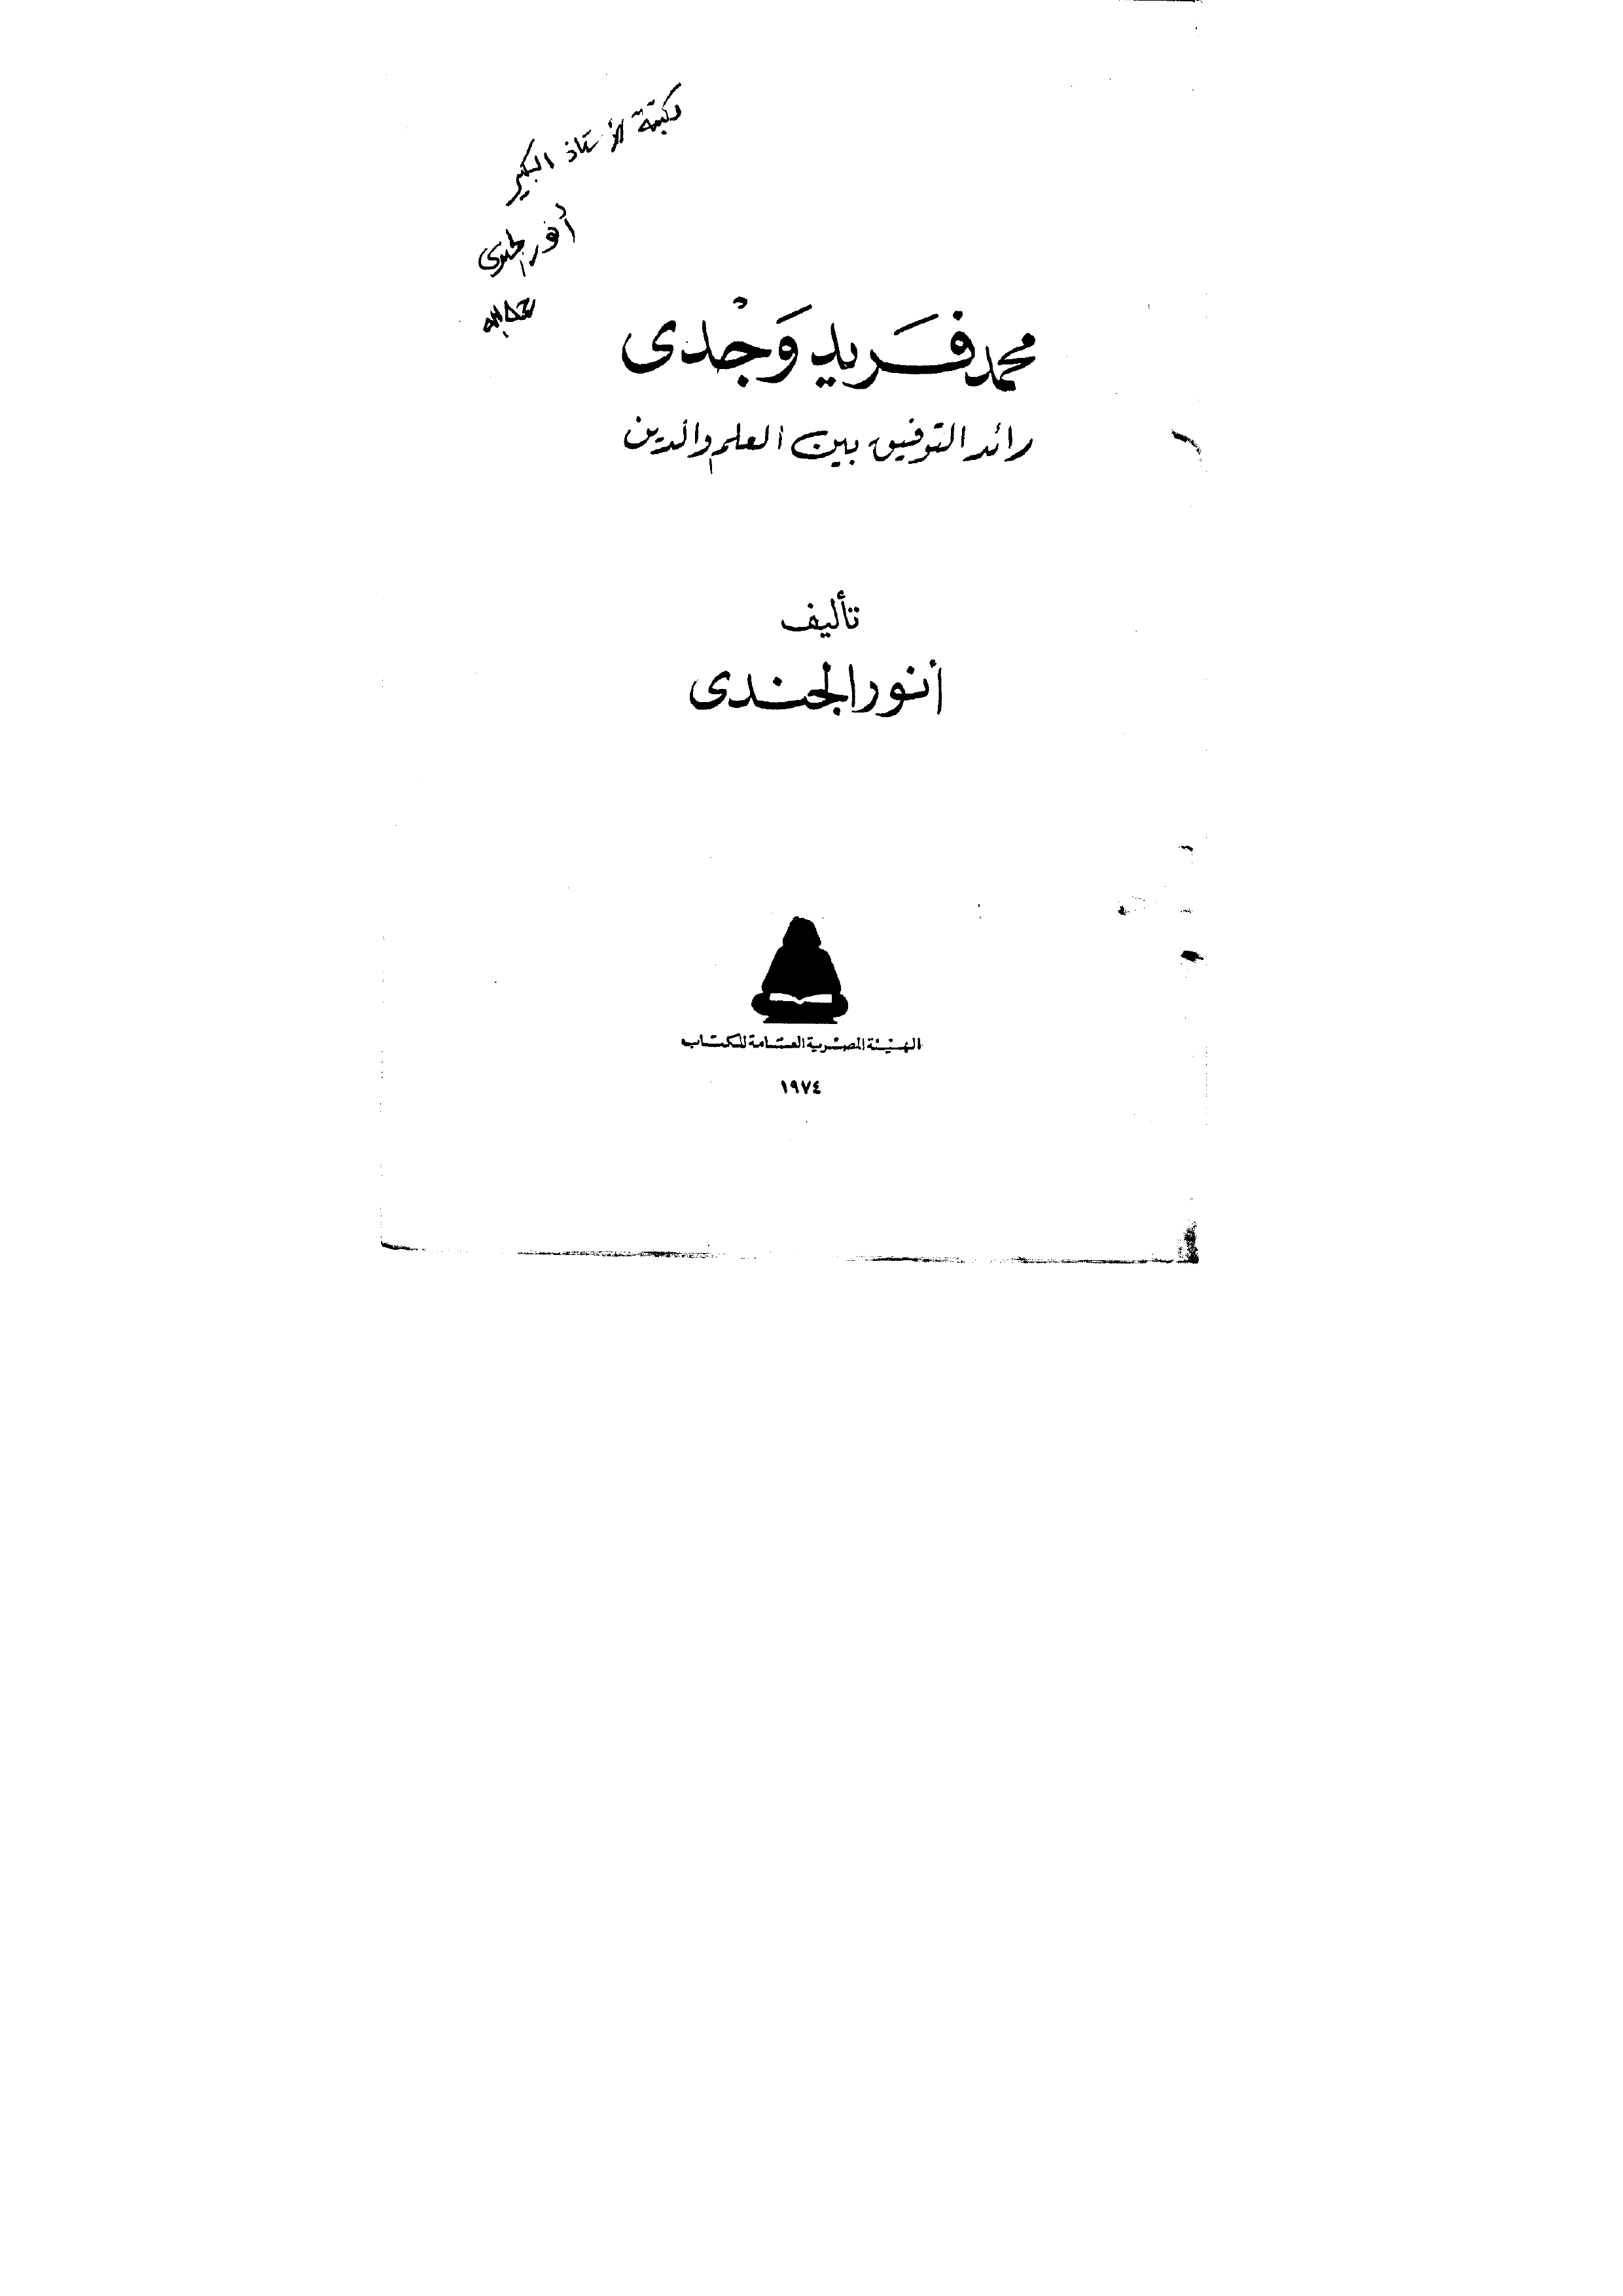 مكتبة الأستاذ الكبير
أنور الجندى
رحمه الله
محمد فَريد وَجْدى
رائد التوفيق بين العلم والدين
تأليف
أنور الجندى
الهيئة المصرية العامة للكتاب
١٩٧٤